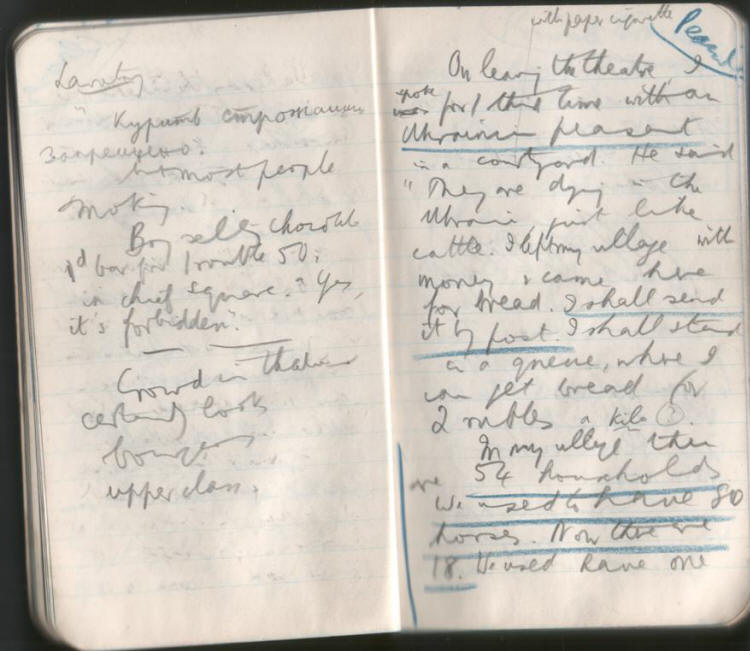 Lavatory
"Курить строжайше
Запрещено.
but most people
smoking
Boy selling chocolate
1d bar for 1 rouble 50;
in chief square. "Yes,
it's forbidden".
Crowd in theatre
certainly looks
bourgeois
upper class.
with paper cigarette
Peasant
On leaving the theatre, I
spoke for / this time with an
Ukrainian peasant
in a courtyard. He said
"They are dying in the
Ukraine just like
cattle. I left my village with
money & came here
for bread. I shall send
it by post. I shall stand
in a queue, where I
can get bread for
2 roubles a kilo
In my village there
are 54 households
We used to have 80
horses. Now there are
18. We used have one